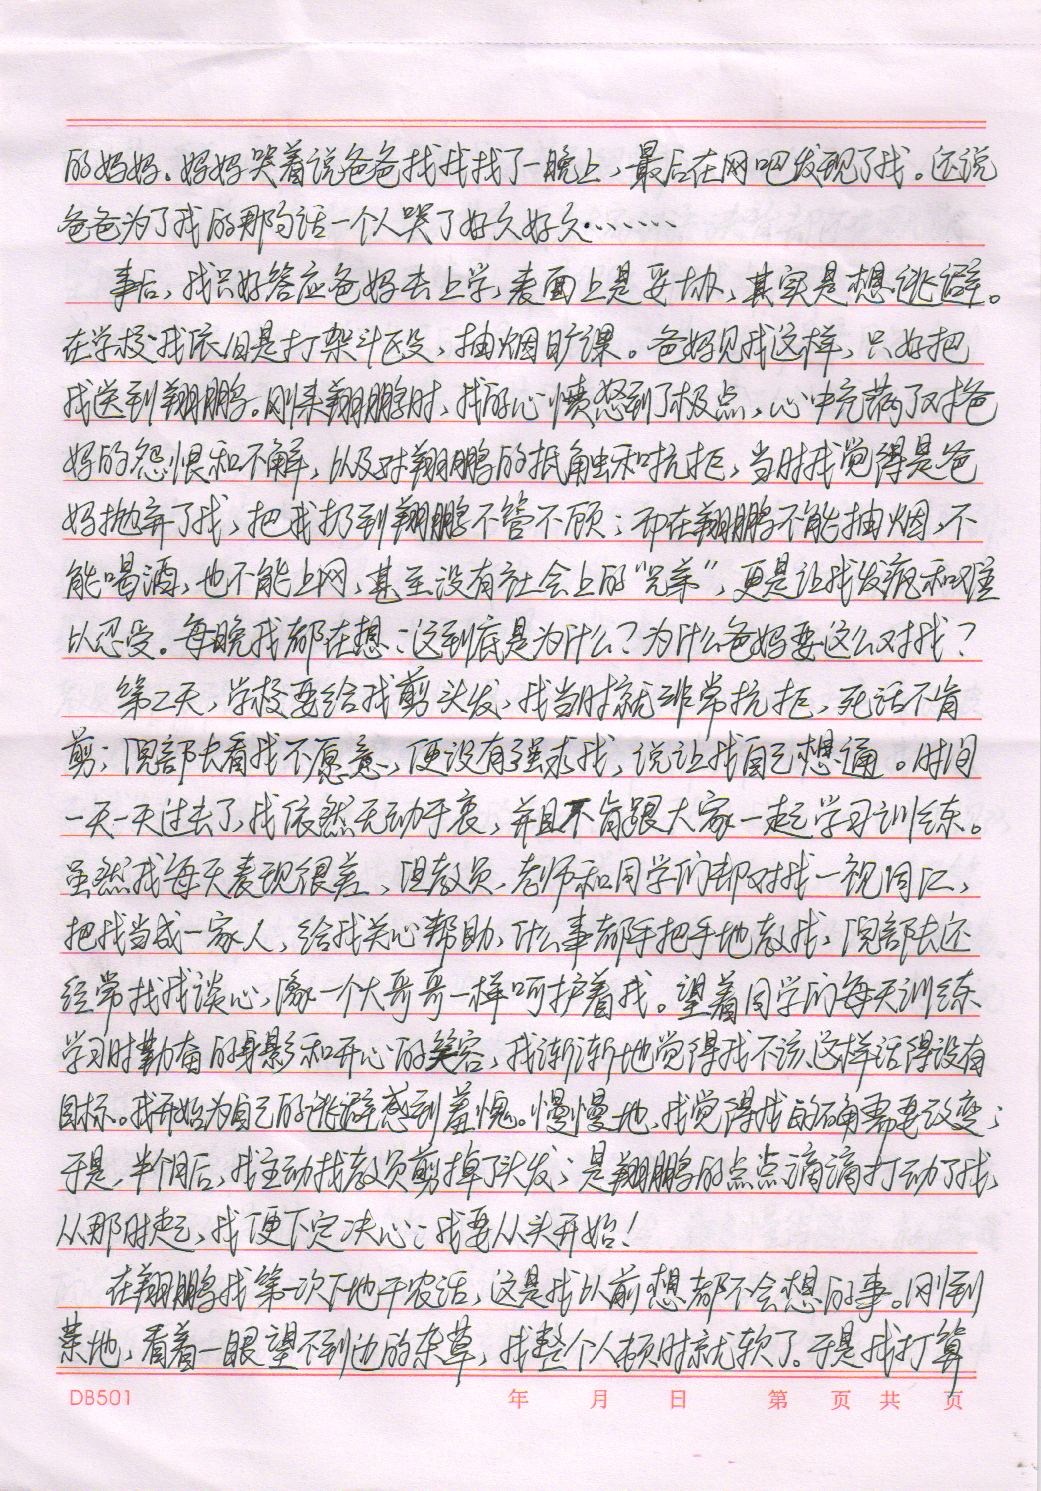 的妈妈。妈妈哭着说爸爸找我找了一晚上，最后在网吧发现了我。还说
爸爸为了我的那句话一个人哭了好久好久……
事后，我只好答应爸妈去上学，表面上是妥协，其实是想逃避。
在学校我依旧是打架斗殴，抽烟旷课。爸妈见我这样，只好把
我送到翔鹏。刚来翔鹏时，我的心愤怒到了极点，心中充满了对爸
妈的怨恨和不解，以及对翔鹏的抵触和抗拒，当时我觉得是爸
妈抛弃了我，把我扔到翔鹏不管不顾；而在翔鹏不能抽烟，不
能喝酒，也不能上网，甚至没有社会上的“兄弟”，更是让我发疯和难
以忍受。每晚我都在想：这到底是为什么？为什么爸妈要这么对我？
第二天，学校要给我剪头发，我当时就非常抗拒，死活不肯
剪；阮部长看我不愿意，便没有强求我，说让我自己想通。时间
一天一天过去了，我依然无动于衷，并且不肯跟大家一起学习训练。
虽然我每天表现很差，但教员、老师和同学们都对我一视同仁，
把我当成一家人，给我关心帮助，什么事都手把手地教我，阮部长还
经常找我谈心，像一个大哥哥一样呵护着我。望着同学们每天训练
学习时勤奋的身影和开心的笑容，我渐渐地觉得我不该这样活得没有
目标。我开始为自己的逃避感到羞愧。慢慢地，我觉得我的确需要改变；
于是，半个月后，我主动找教员剪掉了头发；是翔鹏的点点滴滴打动了我，
从那时起，我便下定决心：我要从头开始！
在翔鹏我第一次下地干农活，这是我以前想都不会想的事。刚到
菜地，看着一眼望不到边的杂草，我整个人顿时就软了。于是我打算
DB501 年 月 日 第 页 共 页